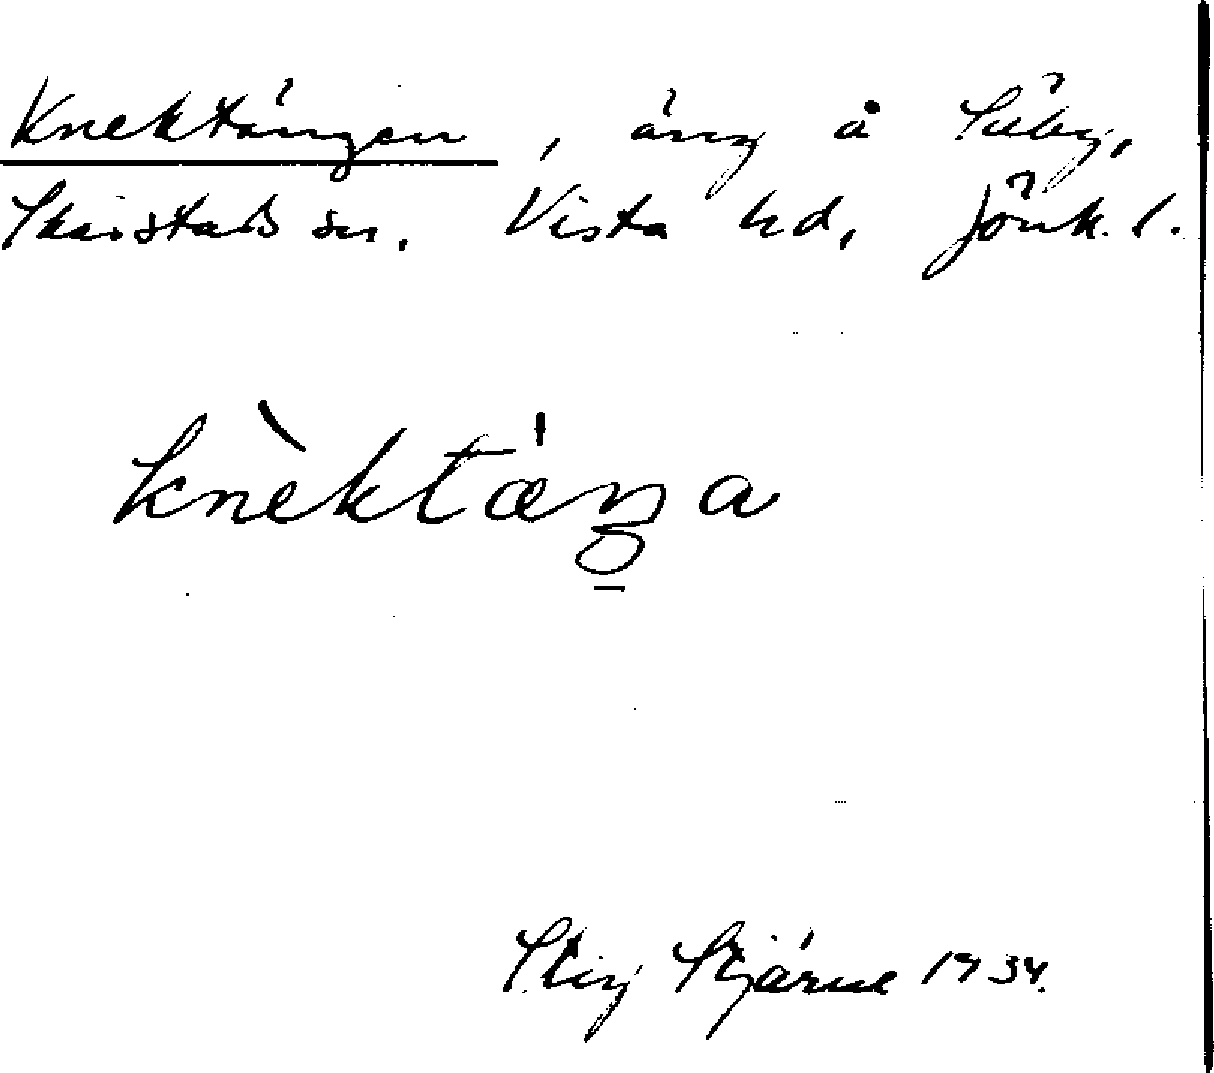 Knektängen, äng å Säby,
Skärstads sn. Vista hd, Jönk. l.
knèktæŋa
Stig Stjärne 1934.